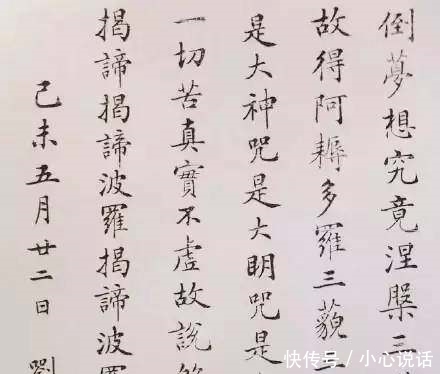 倒夢想究竟涅槃三
故得阿耨多羅三藐
是大神咒是大明咒是
一切苦真實不虛故說
揭諦揭諦波羅揭諦波羅
己未五月廿二日 劉
快传号 / 小心说话